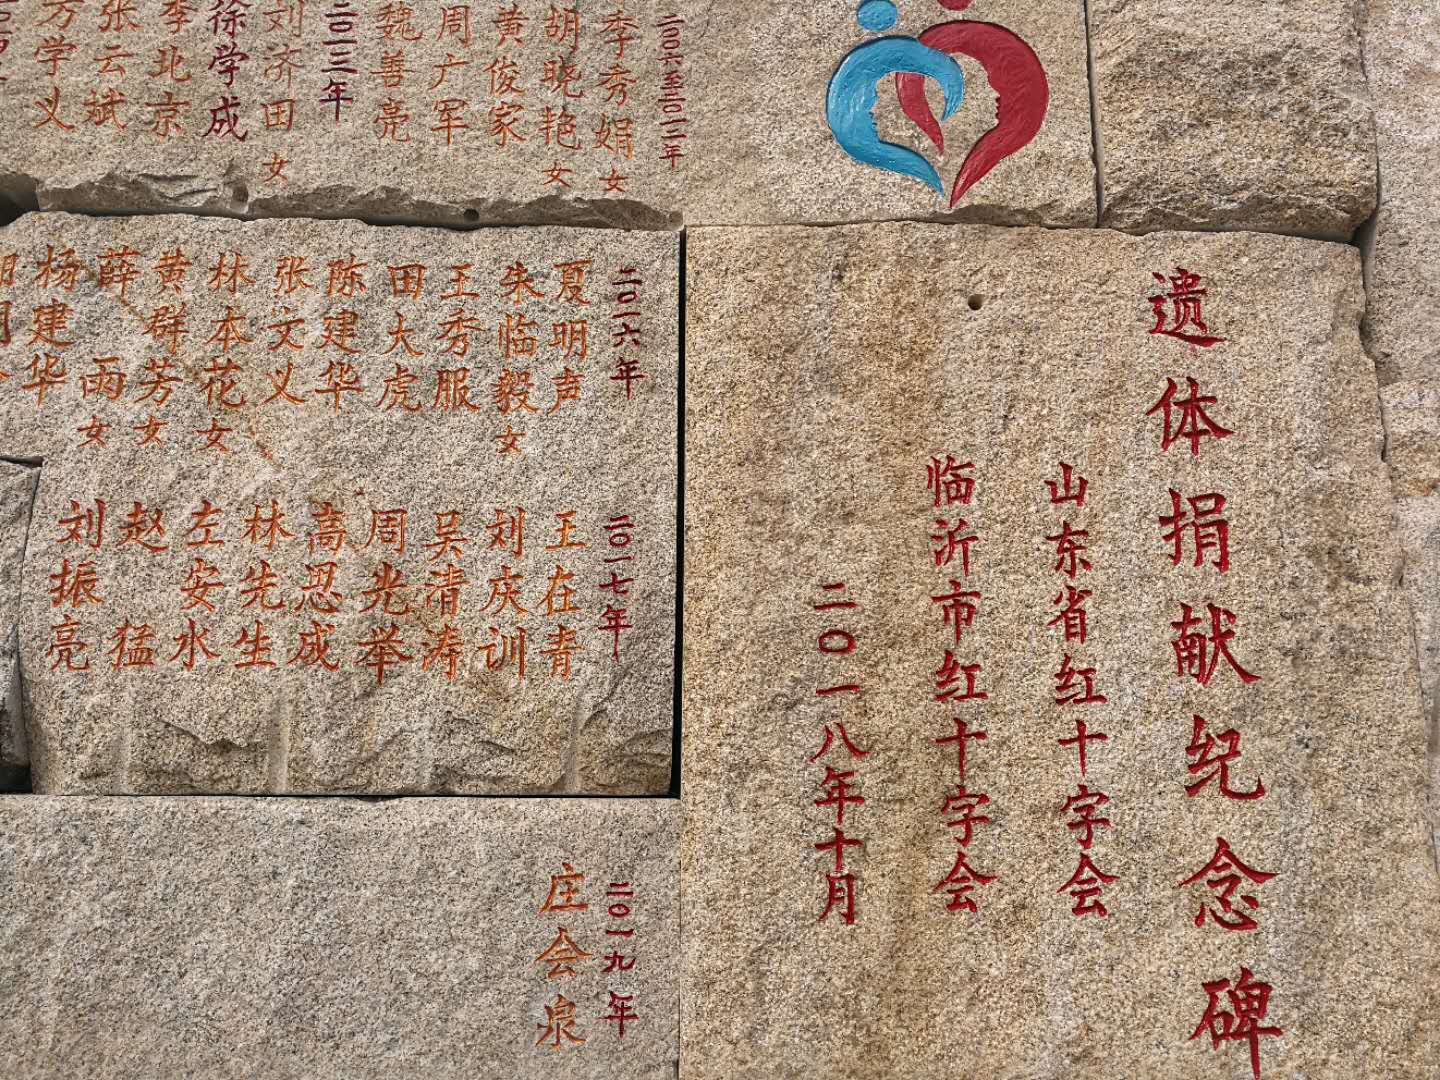 遗体捐献纪念碑
山东省红十字会
临沂市红十字会
二〇一八年十月
二〇〇六至二〇一一年
季秀娟 女
胡晓艳 女
黄俊家
周广军
魏善亮
二〇一三年
刘济田 女
徐学成
李北京
张云斌
方学义
二〇一六年
夏明声
朱临毅 女
王秀服
田大虎
陈建华
张文义
林本花 女
黄群芳 女
薛雨 女
杨建华
二〇一七年
王在青
刘庆训
吴清涛
周光举
高思成
林先生
左安水
赵猛
刘振亮
二〇一九年
庄会泉